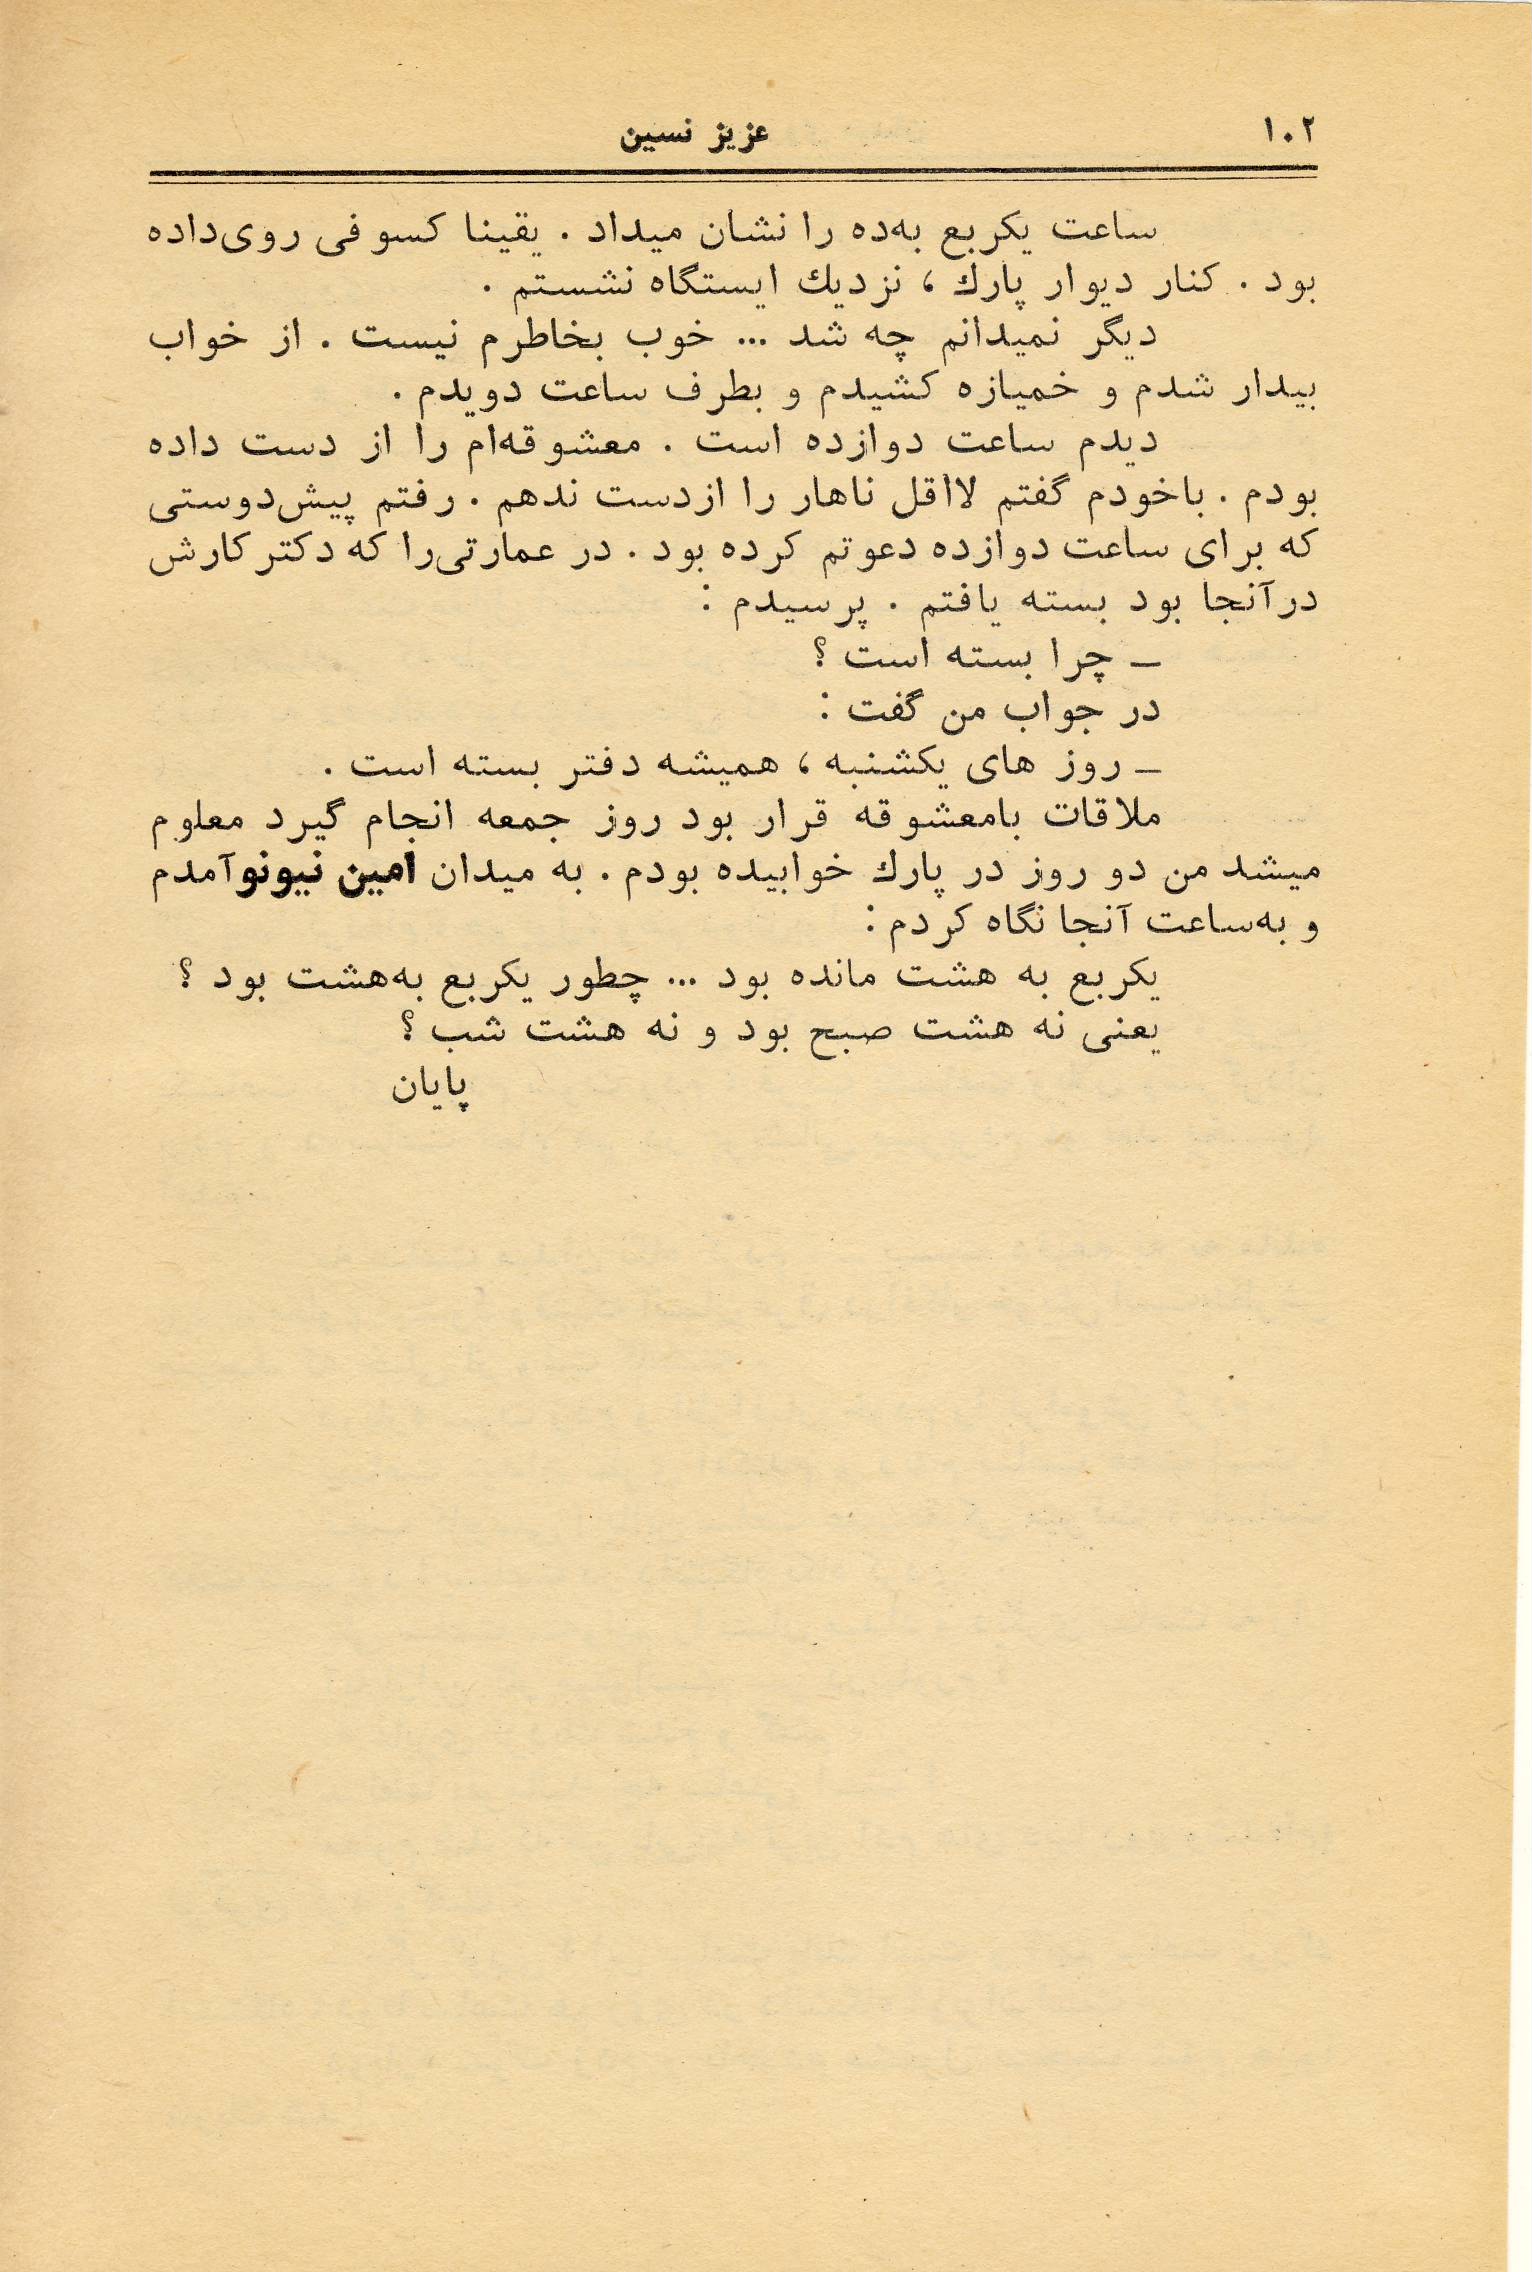 ۱۰۲
عزیز نسین
ساعت یکربع به‌ده را نشان میداد . یقینا کسوفی روی‌داده
بود . کنار دیوار پارك ، نزدیك ایستگاه نشستم .
دیگر نمیدانم چه شد ... خوب بخاطرم نیست . از خواب
بیدار شدم و خمیازه کشیدم و بطرف ساعت دویدم .
دیدم ساعت دوازده است . معشوقه‌ام را از دست داده
بودم . باخودم گفتم لااقل ناهار را ازدست ندهم . رفتم پیش‌دوستی
که برای ساعت دوازده دعوتم کرده بود . در عمارتی‌را که دکتر کارش
درآنجا بود بسته یافتم . پرسیدم :
ـ چرا بسته است ؟
در جواب من گفت :
ـ روز های یکشنبه ، همیشه دفتر بسته است .
ملاقات بامعشوقه قرار بود روز جمعه انجام گیرد معلوم
میشد من دو روز در پارك خوابیده بودم . به میدان امین نیونو آمدم
و به‌ساعت آنجا نگاه کردم :
یکربع به هشت مانده بود ... چطور یکربع به‌هشت بود ؟
یعنی نه هشت صبح بود و نه هشت شب ؟
پایان